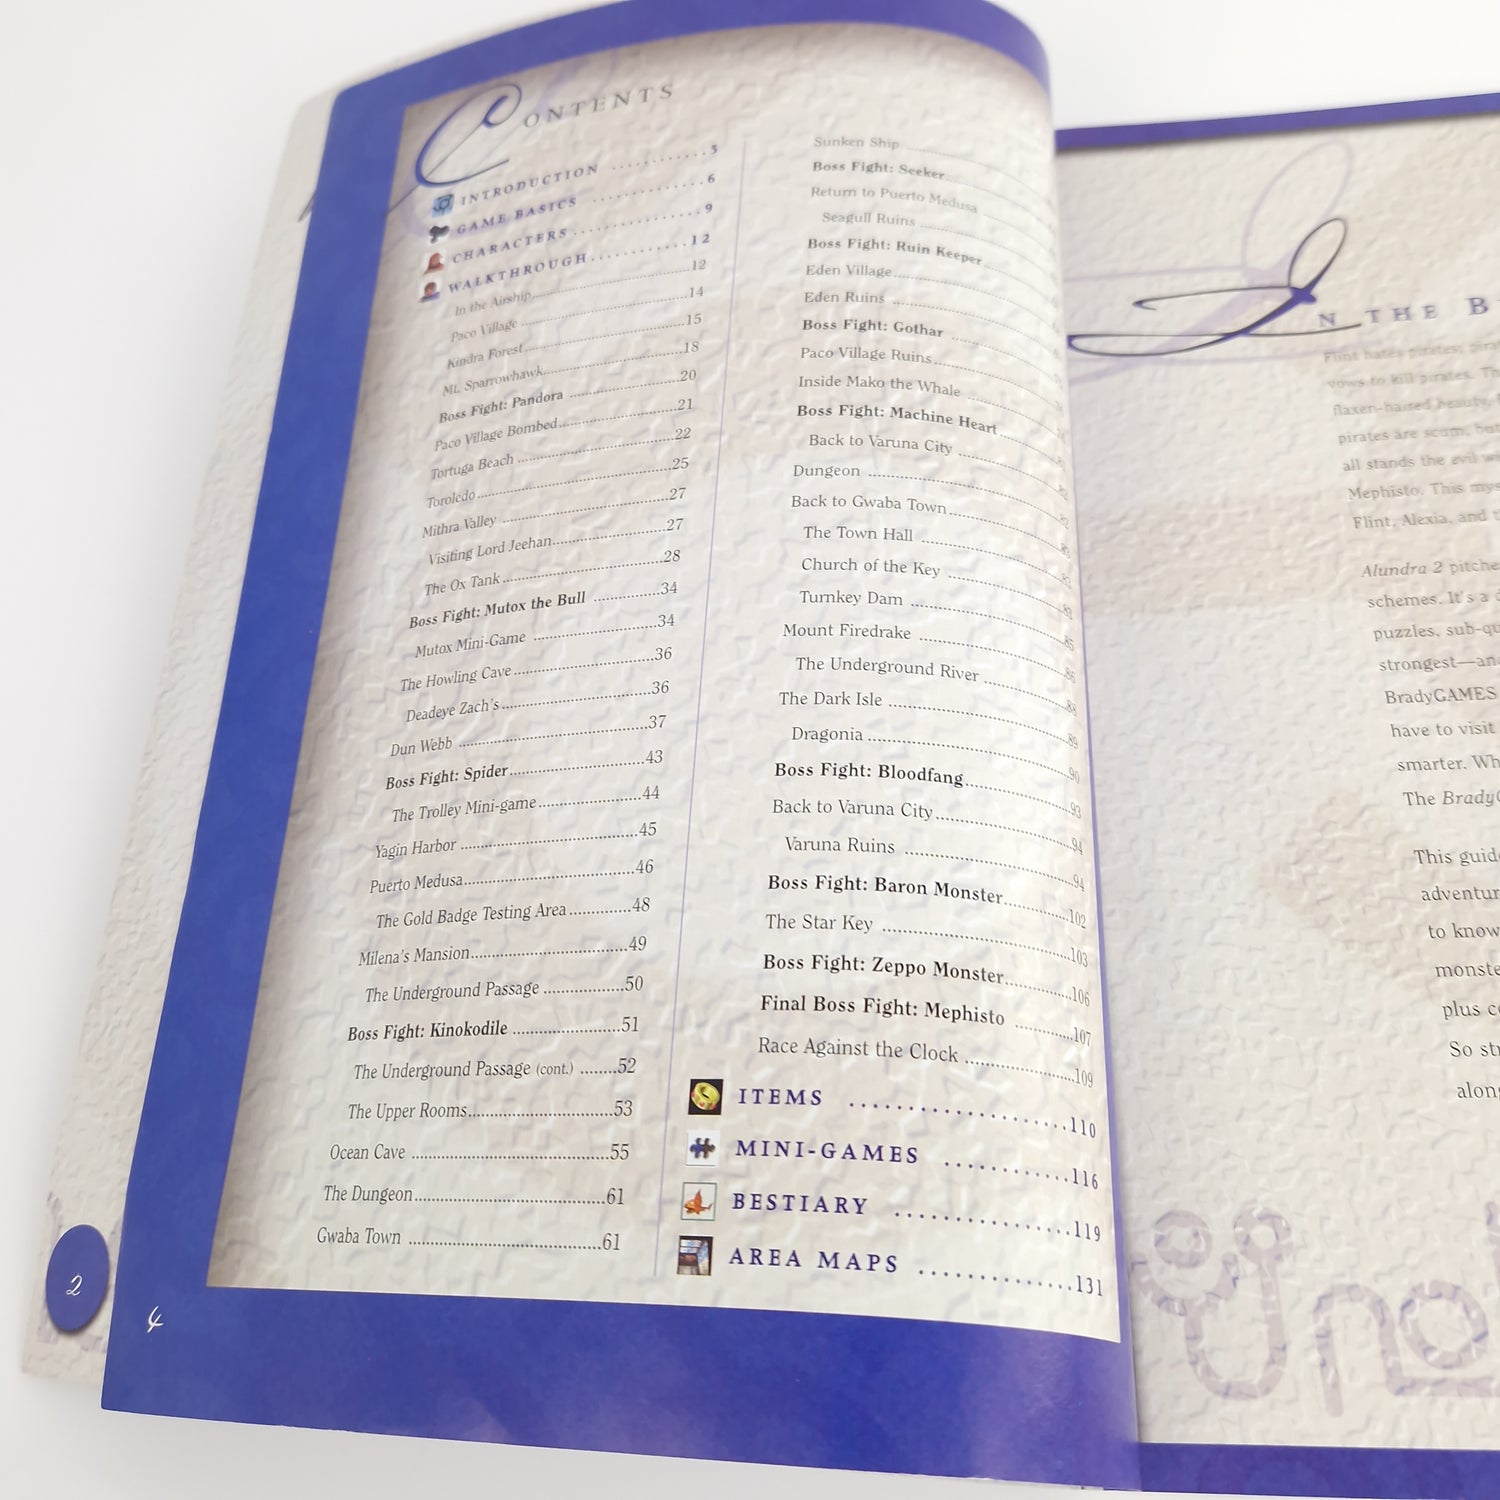 CONTENTS
INTRODUCTION ............5
GAME BASICS ............6
CHARACTERS............9
WALKTHROUGH............12
In the Airship............12
Paco Village ............14
Kindra Forest............15
Mt. Sparrowhawk............18
Boss Fight: Pandora ............20
Paco Village Bombed............21
Tortuga Beach ............22
Toroledo............25
Mithra Valley ............27
Visiting Lord Jeehan............27
The Ox Tank............28
Boss Fight: Mutox the Bull ............34
Mutox Mini-Game ............34
The Howling Cave............36
Deadeye Zach's............36
Dun Webb ............37
Boss Fight: Spider............43
The Trolley Mini-game............44
Yagin Harbor ............45
Puerto Medusa............46
The Gold Badge Testing Area............48
Milena's Mansion............49
The Underground Passage ............50
Boss Fight: Kinokodile ............51
The Underground Passage (cont.) ........52
The Upper Rooms............53
Ocean Cave ............55
The Dungeon............61
Gwaba Town ............61
Sunken Ship ............
Boss Fight: Seeker............
Return to Puerto Medusa ............
Seagull Ruins ............
Boss Fight: Ruin Keeper............
Eden Village............
Eden Ruins ............
Boss Fight: Gothar ............
Paco Village Ruins............
Inside Mako the Whale ............
Boss Fight: Machine Heart............
Back to Varuna City ............
Dungeon ............
Back to Gwaba Town............
The Town Hall ............
Church of the Key ............
Turnkey Dam ............85
Mount Firedrake ............86
The Underground River ............88
The Dark Isle ............89
Dragonia ............90
Boss Fight: Bloodfang............93
Back to Varuna City............94
Varuna Ruins ............94
Boss Fight: Baron Monster............102
The Star Key ............103
Boss Fight: Zeppo Monster............106
Final Boss Fight: Mephisto ............107
Race Against the Clock ............109
ITEMS ............110
MINI-GAMES ............116
BESTIARY ............119
AREA MAPS ............131
2
4
IN THE B
Flint hates pirates;
vows to kill pirates. Th
flaxen-haired beauty,
pirates are scum, but
all stands the evil
Mephisto. This mys
Flint, Alexia, and t
Alundra 2 pitche
schemes. It's a
puzzles, sub-qu
strongest—and
BradyGAMES
have to visit
smarter. Wh
The BradyG
This guide
adventur
to know
monste
plus c
So str
along